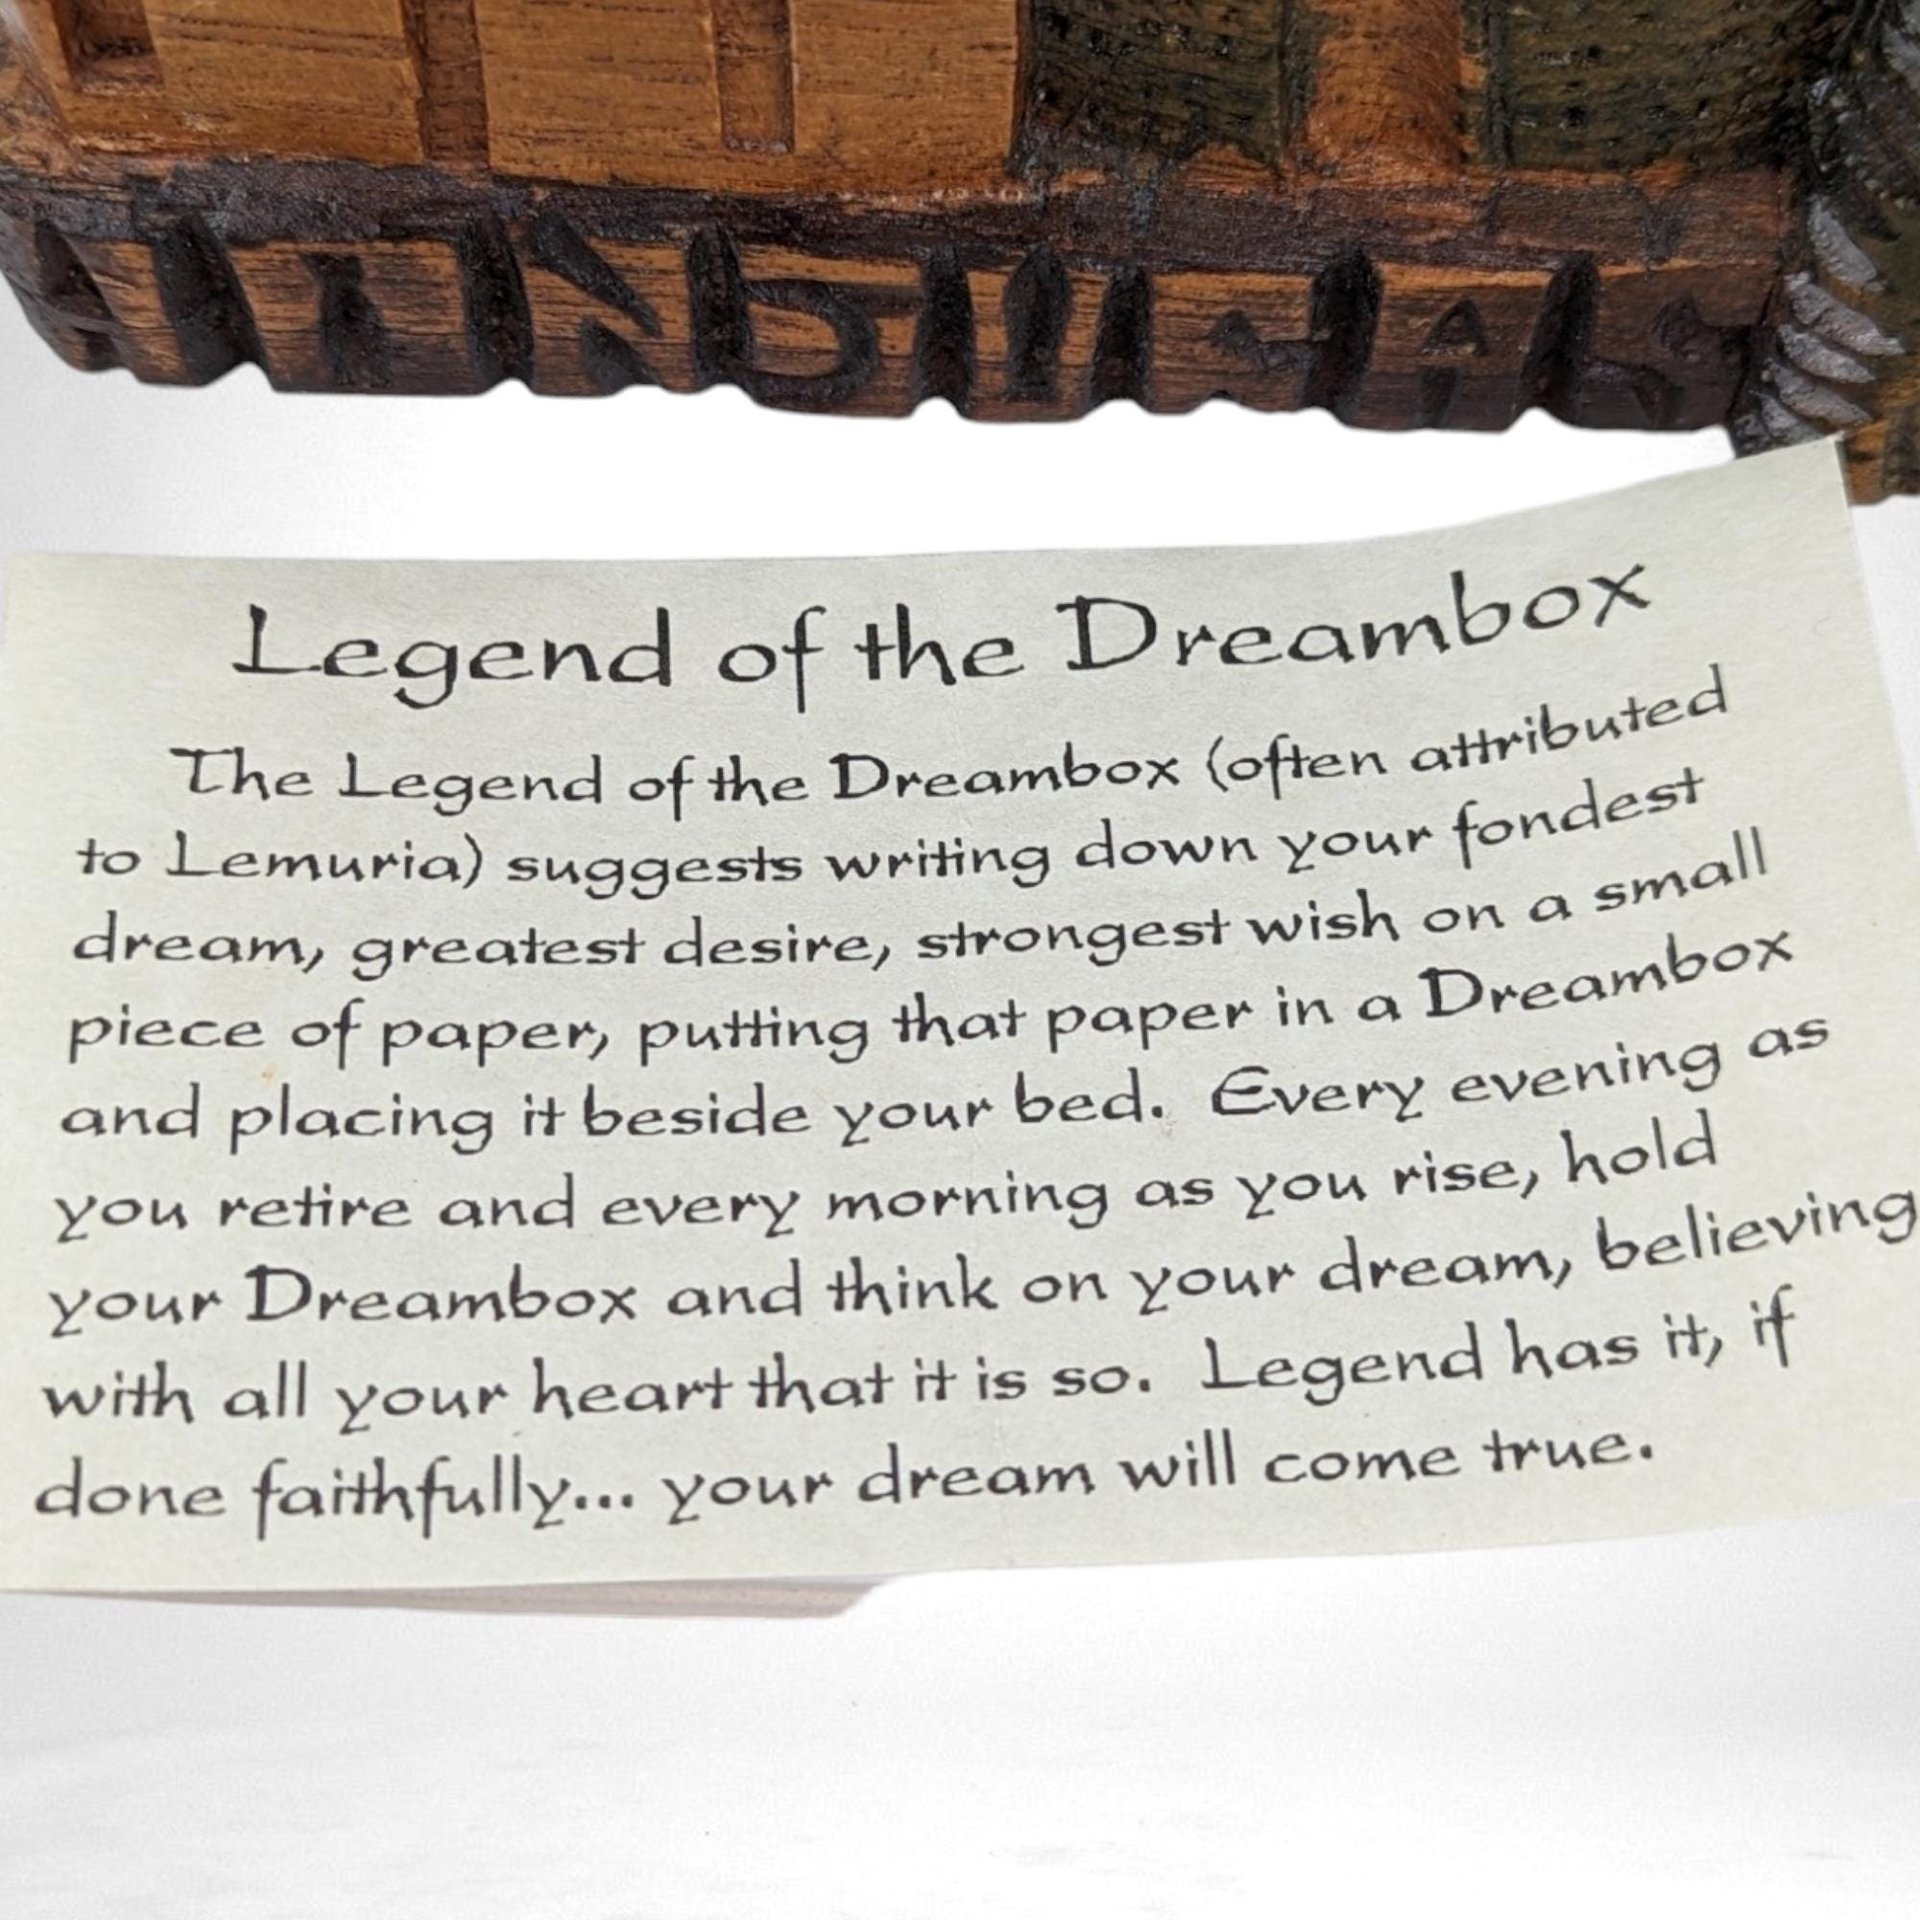 Legend of the Dreambox
The Legend of the Dreambox (often attributed
to Lemuria) suggests writing down your fondest
dream, greatest desire, strongest wish on a small
piece of paper, putting that paper in a Dreambox
and placing it beside your bed. Every evening as
you retire and every morning as you rise, hold
your Dreambox and think on your dream, believing
with all your heart that it is so. Legend has it, if
done faithfully... your dream will come true.